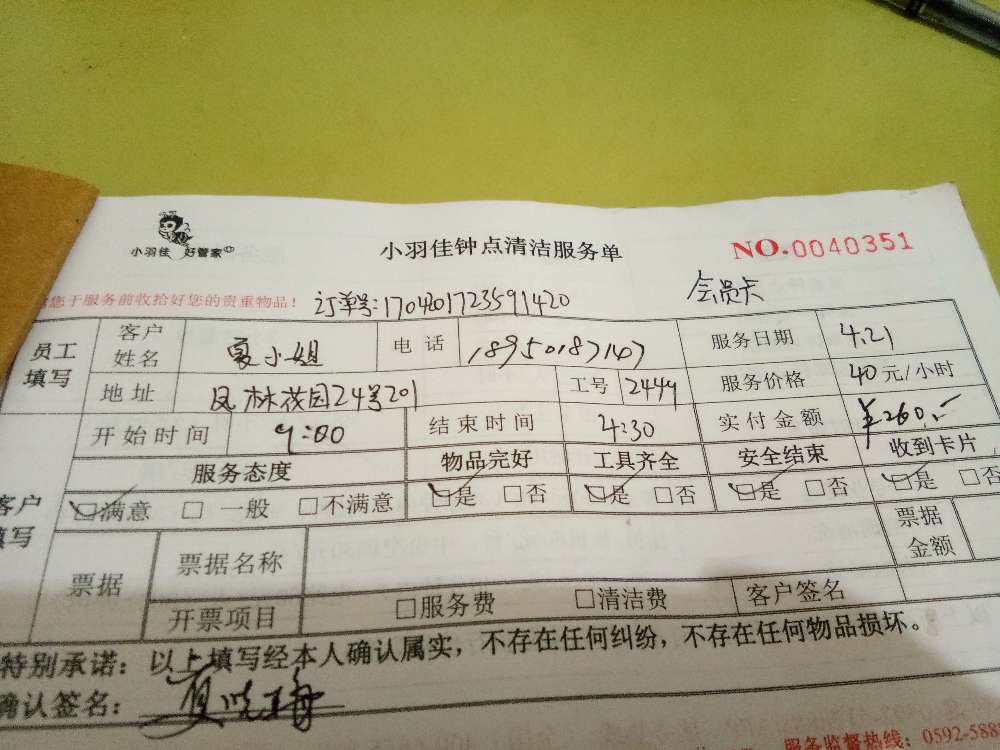 小羽佳 好管家
小羽佳钟点清洁服务单
NO.0040351
您于服务前收拾好您的贵重物品！ 订单号:1704201723591420 会员卡
员工填写 客户姓名 夏小姐 电话 18950187147 服务日期 4.21
地址 凤林花园24号201 工号 2449 服务价格 40元/小时
开始时间 9:00 结束时间 4:30 实付金额 ¥260.-
服务态度 物品完好 工具齐全 安全结束 收到卡片
客户填写 ☑满意 □一般 □不满意 ☑是 □否 ☑是 □否 ☑是 □否 ☑是 □否
票据 票据名称 票据金额
开票项目 □服务费 □清洁费 客户签名
特别承诺：以上填写经本人确认属实，不存在任何纠纷，不存在任何物品损坏。
确认签名：夏晓梅
服务监督热线：0592-588